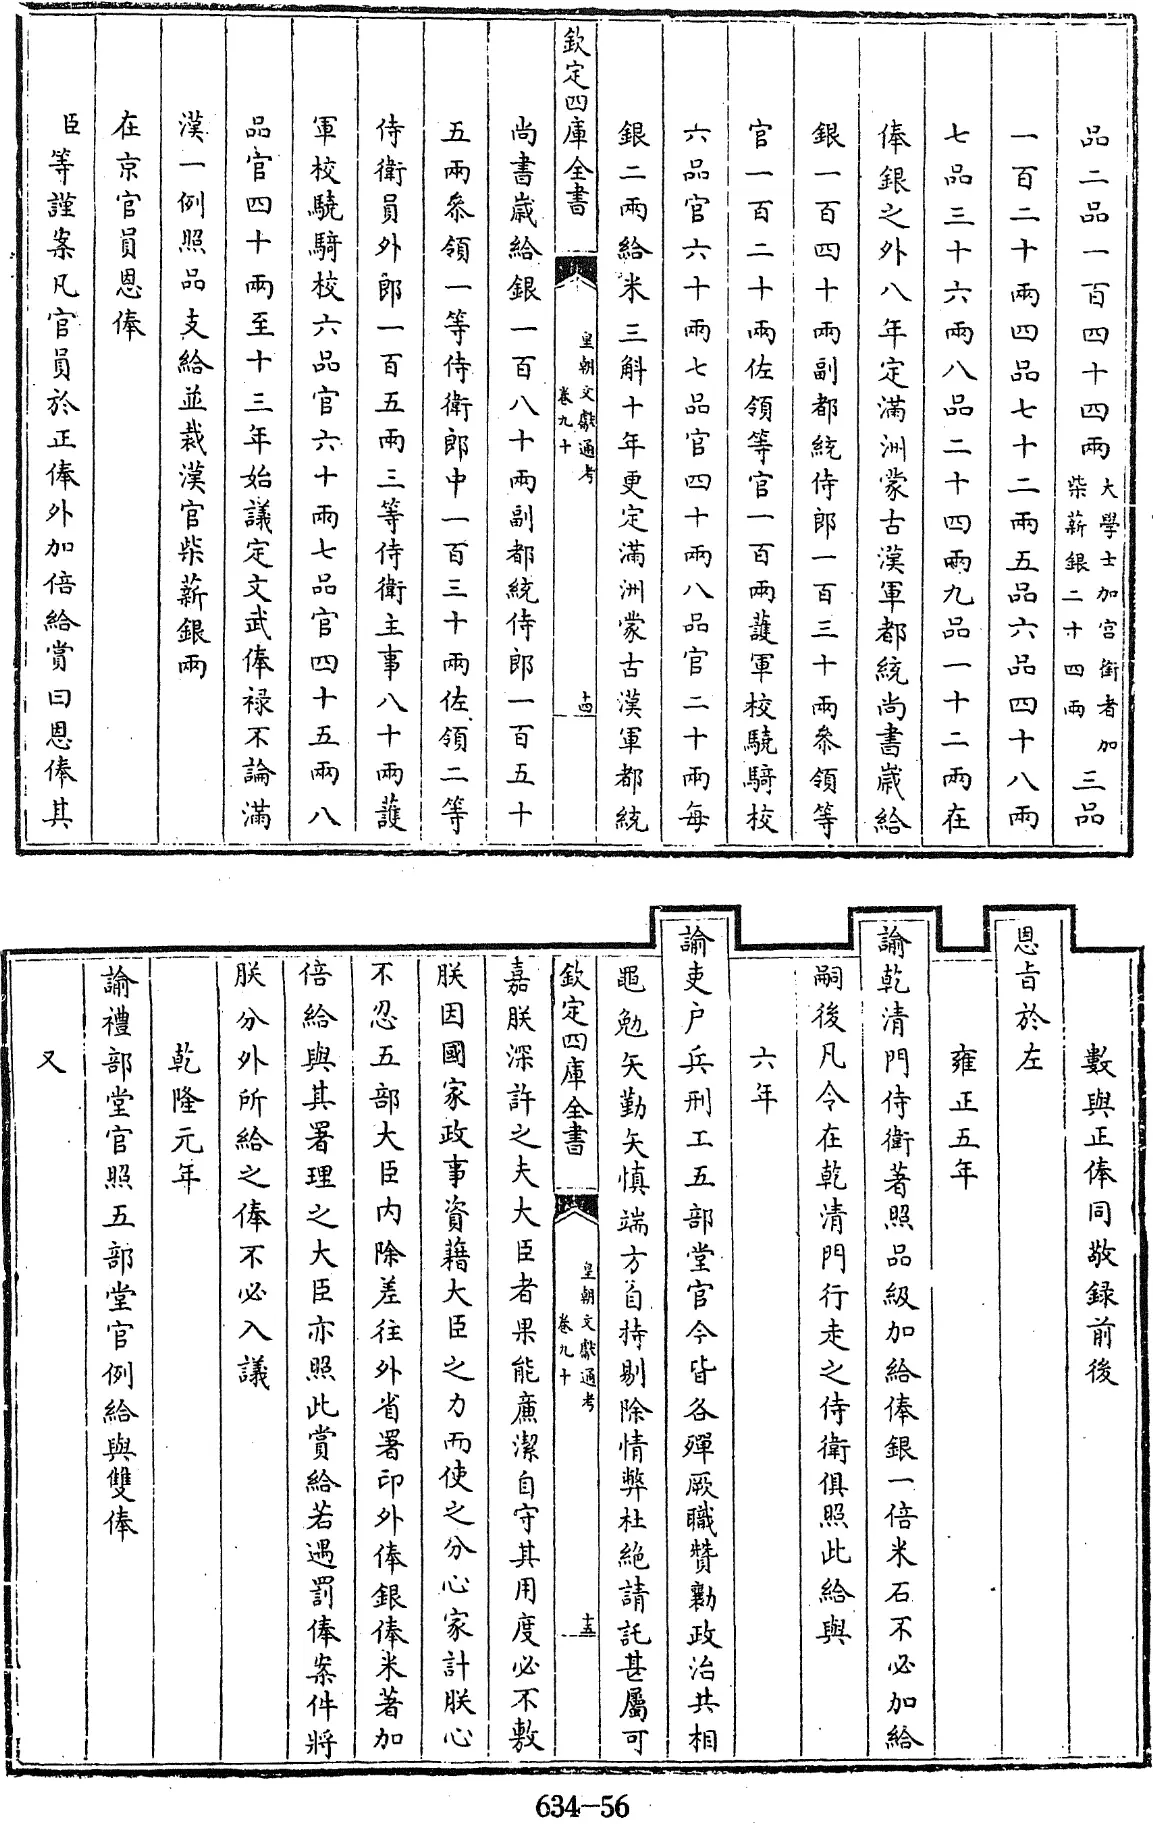 品二品一百四十四兩大學士加宫銜者加柴薪銀二十四兩三品
一百二十兩四品七十二兩五品六品四十八兩
七品三十六兩八品二十四兩九品一十二兩在
俸銀之外八年定滿洲蒙古漢軍都統尚書嵗給
銀一百四十兩副都統侍郎一百三十兩叅領等
官一百二十兩佐領等官一百兩護軍校驍騎校
六品官六十兩七品官四十兩八品官二十兩每
銀二兩給米三斛十年更定滿洲蒙古漢軍都統
欽定四庫全書
皇朝文獻通考
卷九十
十四
尚書嵗給銀一百八十兩副都統侍郎一百五十
五兩叅領一等侍衛郎中一百三十兩佐領二等
侍衛員外郎一百五兩三等侍衛主事八十兩護
軍校驍騎校六品官六十兩七品官四十五兩八
品官四十兩至十三年始議定文武俸禄不論滿
漢一例照品支給並裁漢官柴薪銀兩
在京官員恩俸
臣等謹案凡官員於正俸外加倍給賞曰恩俸其
數與正俸同敬録前後
恩旨於左
雍正五年
諭乾清門侍衛著照品級加給俸銀一倍米石不必加給
嗣後凡令在乾清門行走之侍衛俱照此給與
六年
諭吏户兵刑工五部堂官今皆各殫厥職贊勷政治共相
黽勉矢勤矢慎端方自持剔除情弊杜絶請託甚屬可
欽定四庫全書
皇朝文獻通考
卷九十
十五
嘉朕深許之夫大臣者果能亷潔自守其用度必不敷
朕因國家政事資藉大臣之力而使之分心家計朕心
不忍五部大臣内除差往外省署印外俸銀俸米著加
倍給與其署理之大臣亦照此賞給若遇罰俸案件將
朕分外所給之俸不必入議
乾隆元年
諭禮部堂官照五部堂官例給與雙俸
又
634-56